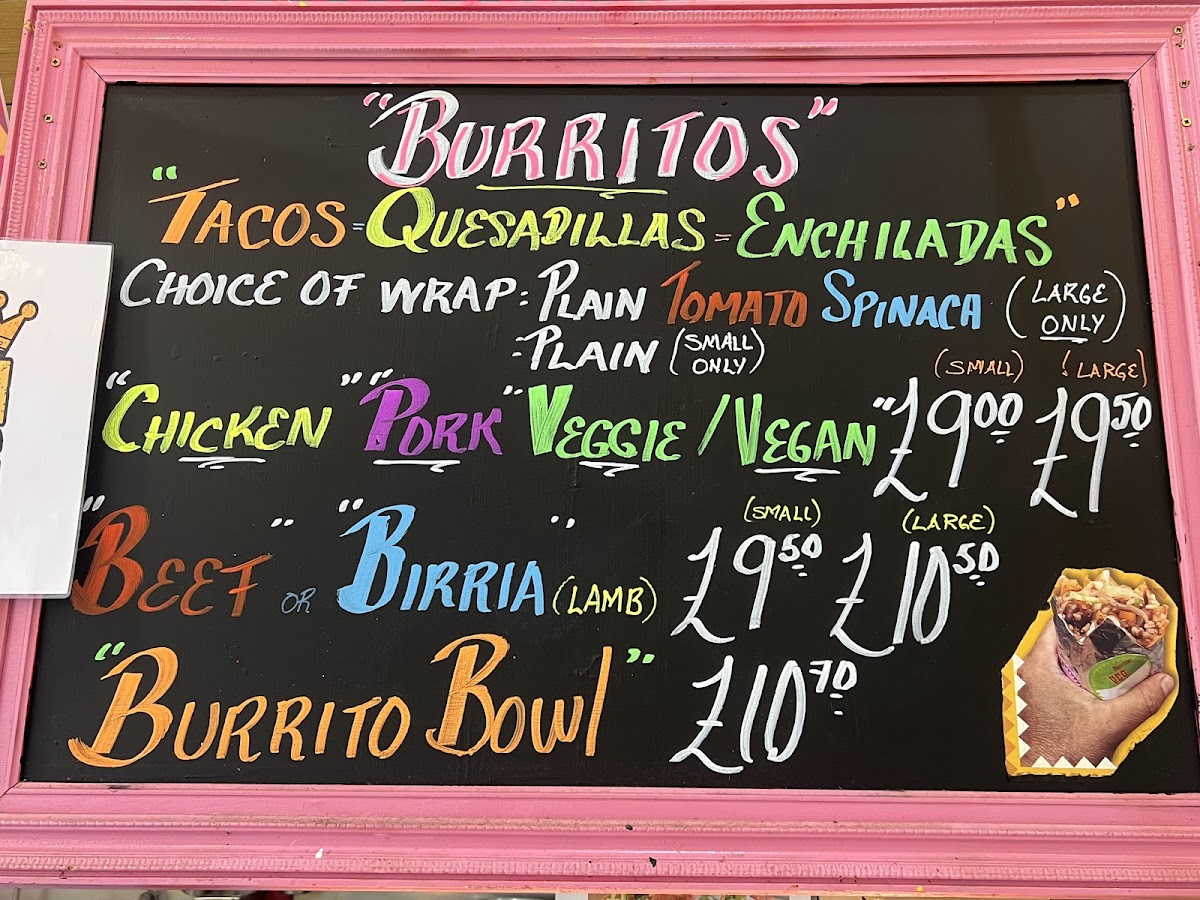 "BURRITOS"
"TACOS = QUESADILLAS = ENCHILADAS"
CHOICE OF WRAP: PLAIN TOMATO SPINACH (LARGE ONLY)
-PLAIN (SMALL ONLY)
(SMALL) (LARGE)
"CHICKEN" "PORK" "VEGGIE / VEGAN" £9.00 £9.50
(SMALL) (LARGE)
"BEEF" OR "BIRRIA" (LAMB) £9.50 £10.50
"BURRITO BOWl" £10.70